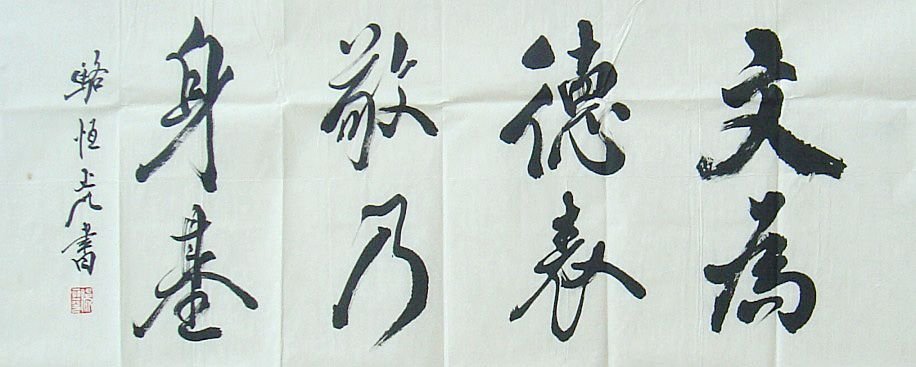 文為
德表
敬乃
身基
駱恒光書